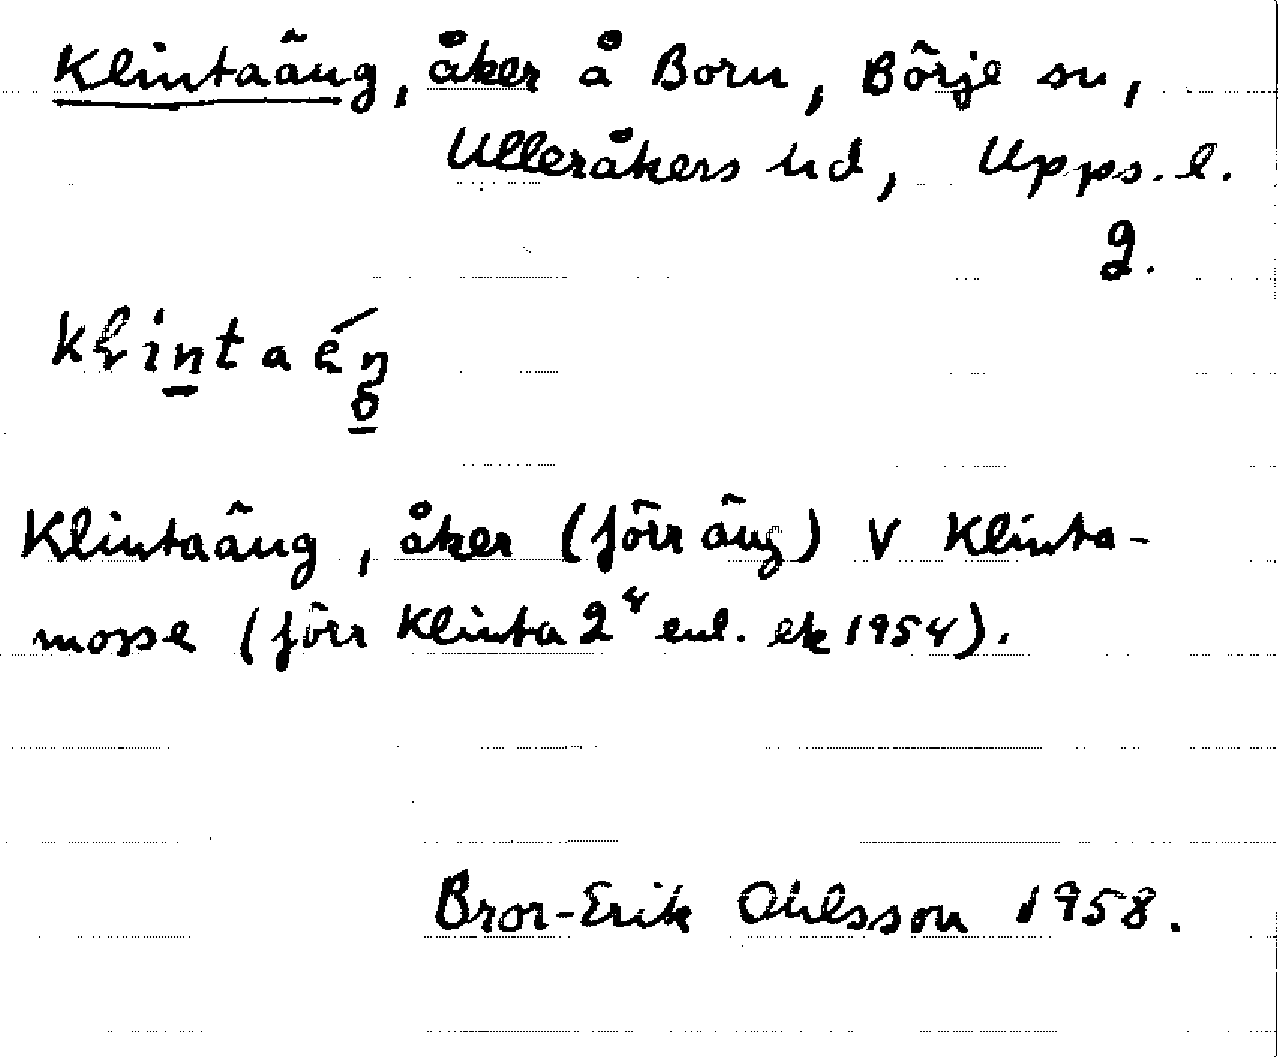 Klintaäng, åker å Born, Börje sn,
Ulleråkers hd, Upps. l.
2.
Klintaäng, åker (förr äng) V Klinta-
mosse (förr Klinta 2⁴ enl. ek 1954).
Bror-Erik Ohlsson 1958.